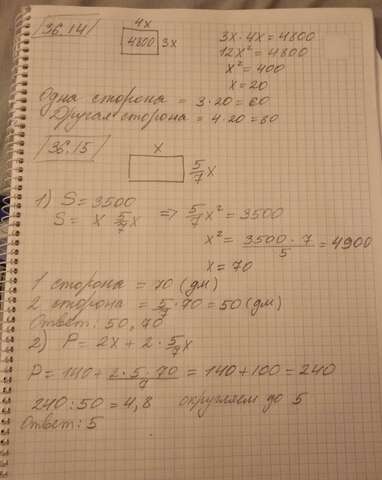 36.14
4x
4800 3x
3x · 4x = 4800
12x² = 4800
x² = 400
x = 20
Одна сторона = 3·20 = 60
Другая сторона = 4·20 = 80
36.15
x
5/7 x
1) S = 3500
S = x 5/7 x => 5/7 x² = 3500
x² = 3500 · 7 / 5 = 4900
x = 70
1 сторона = 70 (дм)
2 сторона = 5/7 · 70 = 50 (дм)
Ответ: 50, 70
2) P = 2x + 2 · 5/7 x
P = 140 + 2·5·70/7 = 140 + 100 = 240
240 : 50 = 4,8 округляем до 5
Ответ: 5